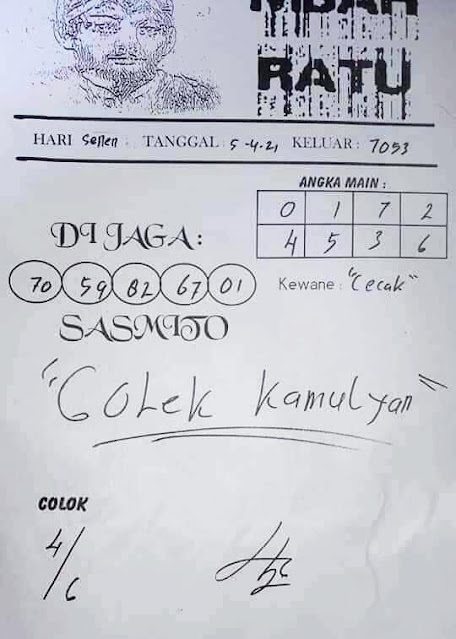 MBAH
RATU
HARI Senen : TANGGAL : 5-4-21 KELUAR : 7053
ANGKA MAIN :
0 1 7 2
4 5 3 6
DI JAGA :
70 59 82 67 01
Kewane : "Cecak"
SASMITO
"GOLek Kamulyan"
COLOK
4/6